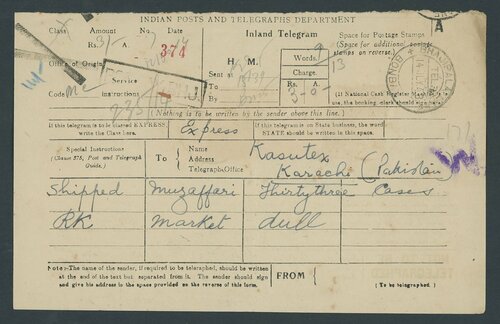 INDIAN POSTS AND TELEGRAPHS DEPARTMENT
Class X
Amount
Rs. 3/-
374
Inland Telegram
Space for Postage Stamps
(Space for additional postage stamps on reverse.)
Office of Origin
Service
H. M.
Sent at
To
By
Words.
13
Charge.
Rs. A.
3-0-
Code
(National Cash Register Machine
use, the booking clerk should sign here.)
(Nothing is to be written by the sender above this line.)
If this telegram is to be classed EXPRESS, write the Class here.
Express
If this telegram is on State business, the word STATE should be written in this space.
Special Instructions
(Clause 275, Post and Telegraph Guide.)
To
Name
Address
Telegraph Office
Kasutex
Karachi (Pakistan
Shipped Muzaffari Thirtythree Cases
RK Market dull
Note:-The name of the sender, if required to be telegraphed, should be written
at the end of the text but separated from it. The sender should sign
and give his address in the space provided on the reverse of this form.
FROM
(To be telegraphed.)